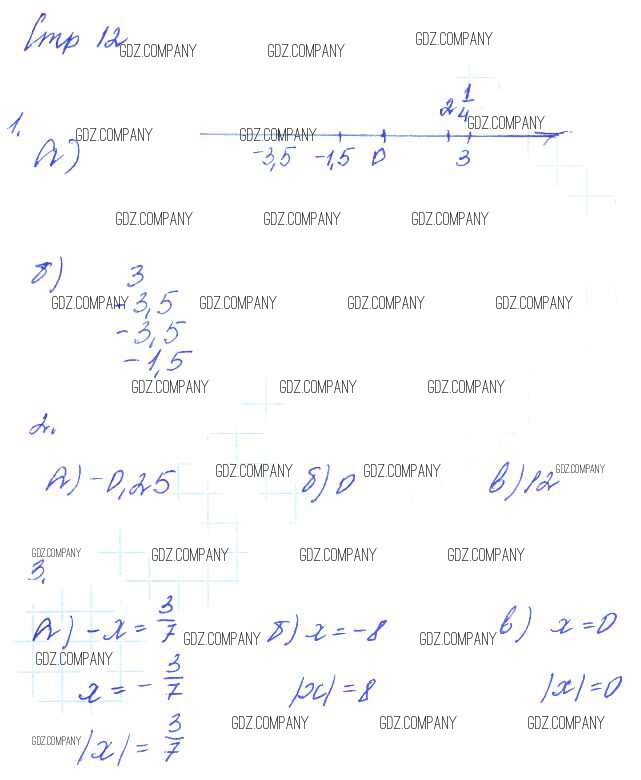 Стр 12
GDZ.COMPANY GDZ.COMPANY GDZ.COMPANY
1. а) -3,5 -1,5 0 2 1/4 3
GDZ.COMPANY GDZ.COMPANY GDZ.COMPANY
GDZ.COMPANY GDZ.COMPANY GDZ.COMPANY
б) 3
-3,5
GDZ.COMPANY GDZ.COMPANY GDZ.COMPANY GDZ.COMPANY
-3,5
-1,5
GDZ.COMPANY GDZ.COMPANY GDZ.COMPANY
2.
а) -0,25 б) 0 в) 12
GDZ.COMPANY GDZ.COMPANY GDZ.COMPANY
GDZ.COMPANY GDZ.COMPANY GDZ.COMPANY GDZ.COMPANY
3.
а) -x = 3/7 б) x = -8 в) x = 0
GDZ.COMPANY GDZ.COMPANY
GDZ.COMPANY
x = - 3/7 |x| = 8 |x| = 0
|x| = 3/7
GDZ.COMPANY GDZ.COMPANY GDZ.COMPANY GDZ.COMPANY